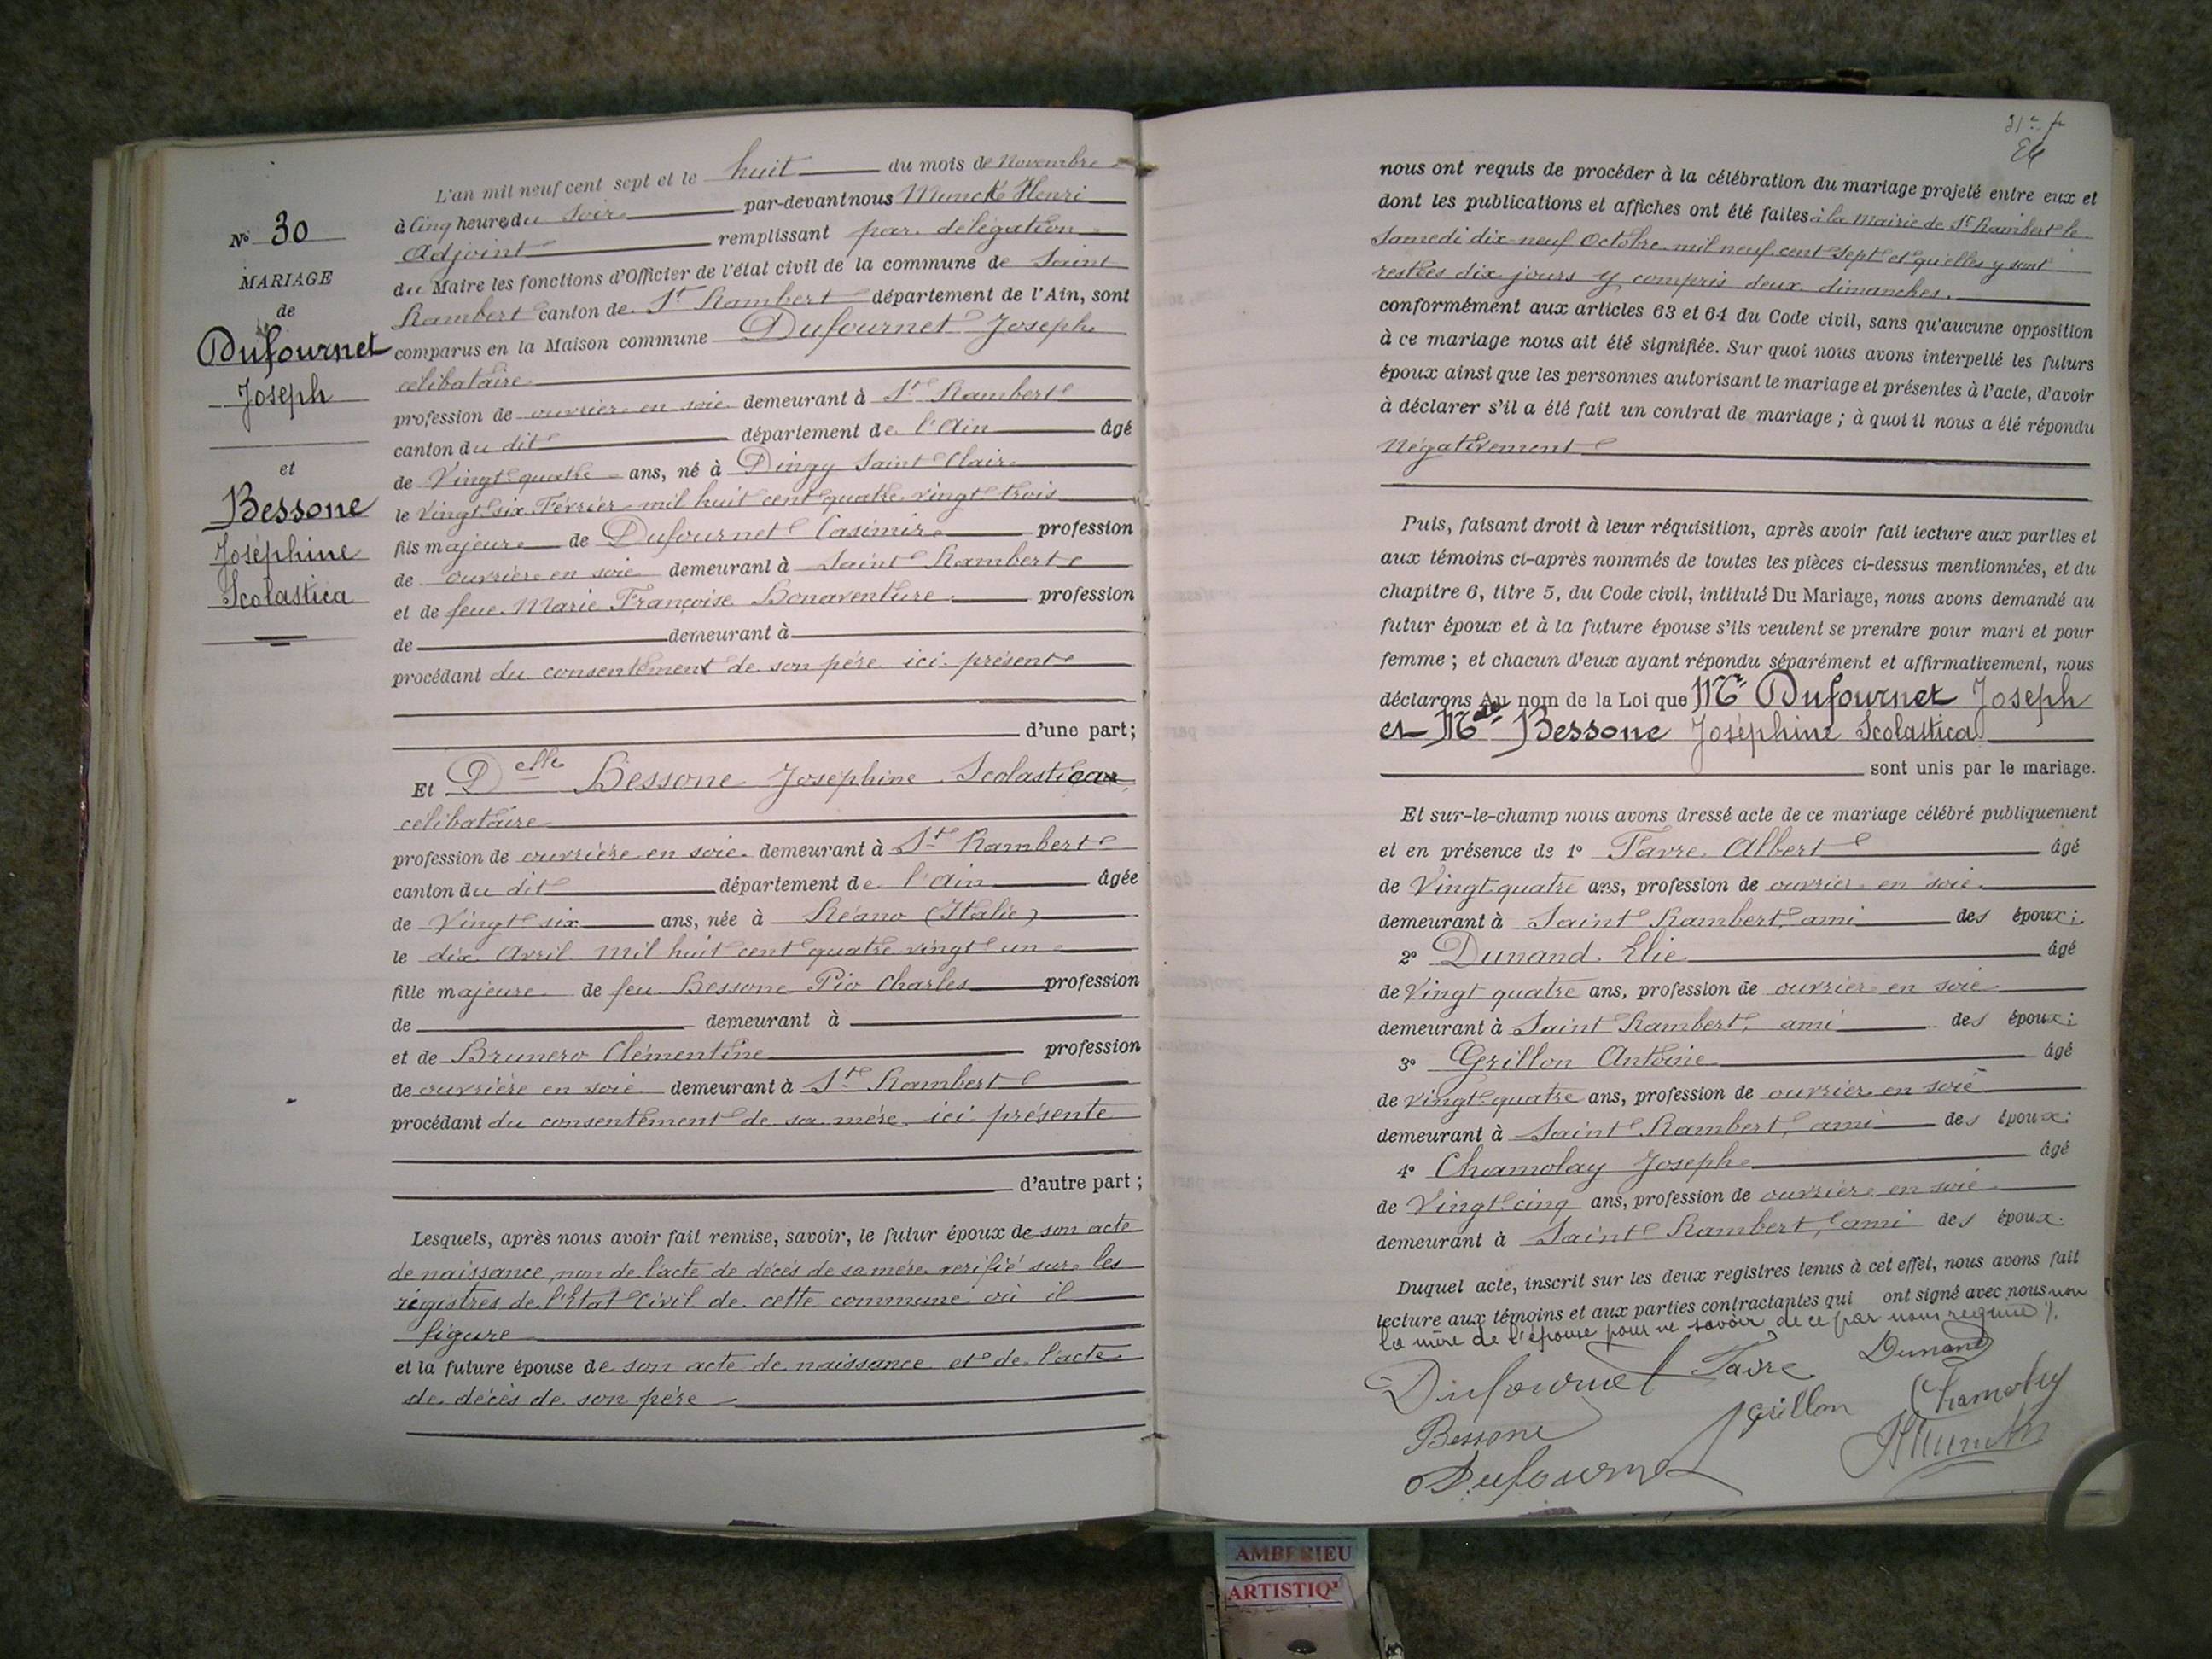 N° 30
MARIAGE
de
Dufournet
Joseph
et
Bessone
Joséphine
Scolastica
L'an mil neuf cent sept et le huit du mois de Novembre
à Cinq heures du soir par-devant nous Munck Henri
Adjoint remplissant par délégation
du Maire les fonctions d'Officier de l'état civil de la commune de Saint
Rambert canton de St Rambert département de l'Ain, sont
comparus en la Maison commune Dufournet Joseph
célibataire
profession de ouvrier en soie demeurant à St Rambert
canton du dit département de l'Ain âgé
de Vingt quatre ans, né à Dingy Saint Clair
le Vingt six Février mil huit cent quatre vingt trois
fils majeur de Dufournet Casimir profession
de ouvrier en soie demeurant à Saint Rambert
et de feue Marie Françoise Bonaventure profession
de demeurant à
procédant du consentement de son père ici présent
d'une part;
Et Delle Bessone Josephine Scolastica
celibataire
profession de ouvrière en soie demeurant à St Rambert
canton du dit département de l'Ain âgée
de Vingt six ans, née à Réano (Italie)
le dix Avril Mil huit cent quatre vingt un
fille majeure de feu Bessone Pio Charles profession
de demeurant à
et de Brunero Clémentine profession
de ouvrière en soie demeurant à St Rambert
procédant du consentement de sa mère ici présente
d'autre part;
Lesquels, après nous avoir fait remise, savoir, le futur époux de son acte
de naissance, non de l'acte de décès de sa mère verifié sur les
régistres de l'Etat Civil de cette commune où il
figure
et la future épouse de son acte de naissance et de l'acte
de décès de son père
31e f
nous ont requis de procéder à la célébration du mariage projeté entre eux et
dont les publications et affiches ont été faites à la Mairie de St Rambert le
Samedi dix-neuf Octobre mil neuf cent sept et qu'elles y sont
restées dix jours y compris deux dimanches.
conformément aux articles 63 et 64 du Code civil, sans qu'aucune opposition
à ce mariage nous ait été signifiée. Sur quoi nous avons interpellé les futurs
époux ainsi que les personnes autorisant le mariage et présentes à l'acte, d'avoir
à déclarer s'il a été fait un contrat de mariage; à quoi il nous a été répondu
Négativement
Puis, faisant droit à leur réquisition, après avoir fait lecture aux parties et
aux témoins ci-après nommés de toutes les pièces ci-dessus mentionnées, et du
chapitre 6, titre 5, du Code civil, intitulé Du Mariage, nous avons demandé au
futur époux et à la future épouse s'ils veulent se prendre pour mari et pour
femme; et chacun d'eux ayant répondu séparément et affirmativement, nous
déclarons Au nom de la Loi que Mr Dufournet Joseph
et Melle Bessone Joséphine Scolastica
sont unis par le mariage.
Et sur-le-champ nous avons dressé acte de ce mariage célébré publiquement
et en présence de 1° Favre Albert âgé
de Vingt-quatre ans, profession de ouvrier en soie
demeurant à Saint Rambert, ami des époux;
2° Dunand Elie âgé
de Vingt quatre ans, profession de ouvrier en soie
demeurant à Saint Rambert, ami des époux;
3° Grillon Antoine âgé
de vingt-quatre ans, profession de ouvrier en soie
demeurant à Saint Rambert, ami des époux;
4° Chamolay Joseph âgé
de Vingt cinq ans, profession de ouvrier en soie
demeurant à Saint Rambert, ami des époux.
Duquel acte, inscrit sur les deux registres tenus à cet effet, nous avons fait
lecture aux témoins et aux parties contractantes qui ont signé avec nous non
la mère de l'épouse pour ne savoir de ce par nous requise
Dufournet Favre Dunand
Bessone Grillon Chamolay
Dufournet HMunck
AMBERIEU
ARTISTIQ